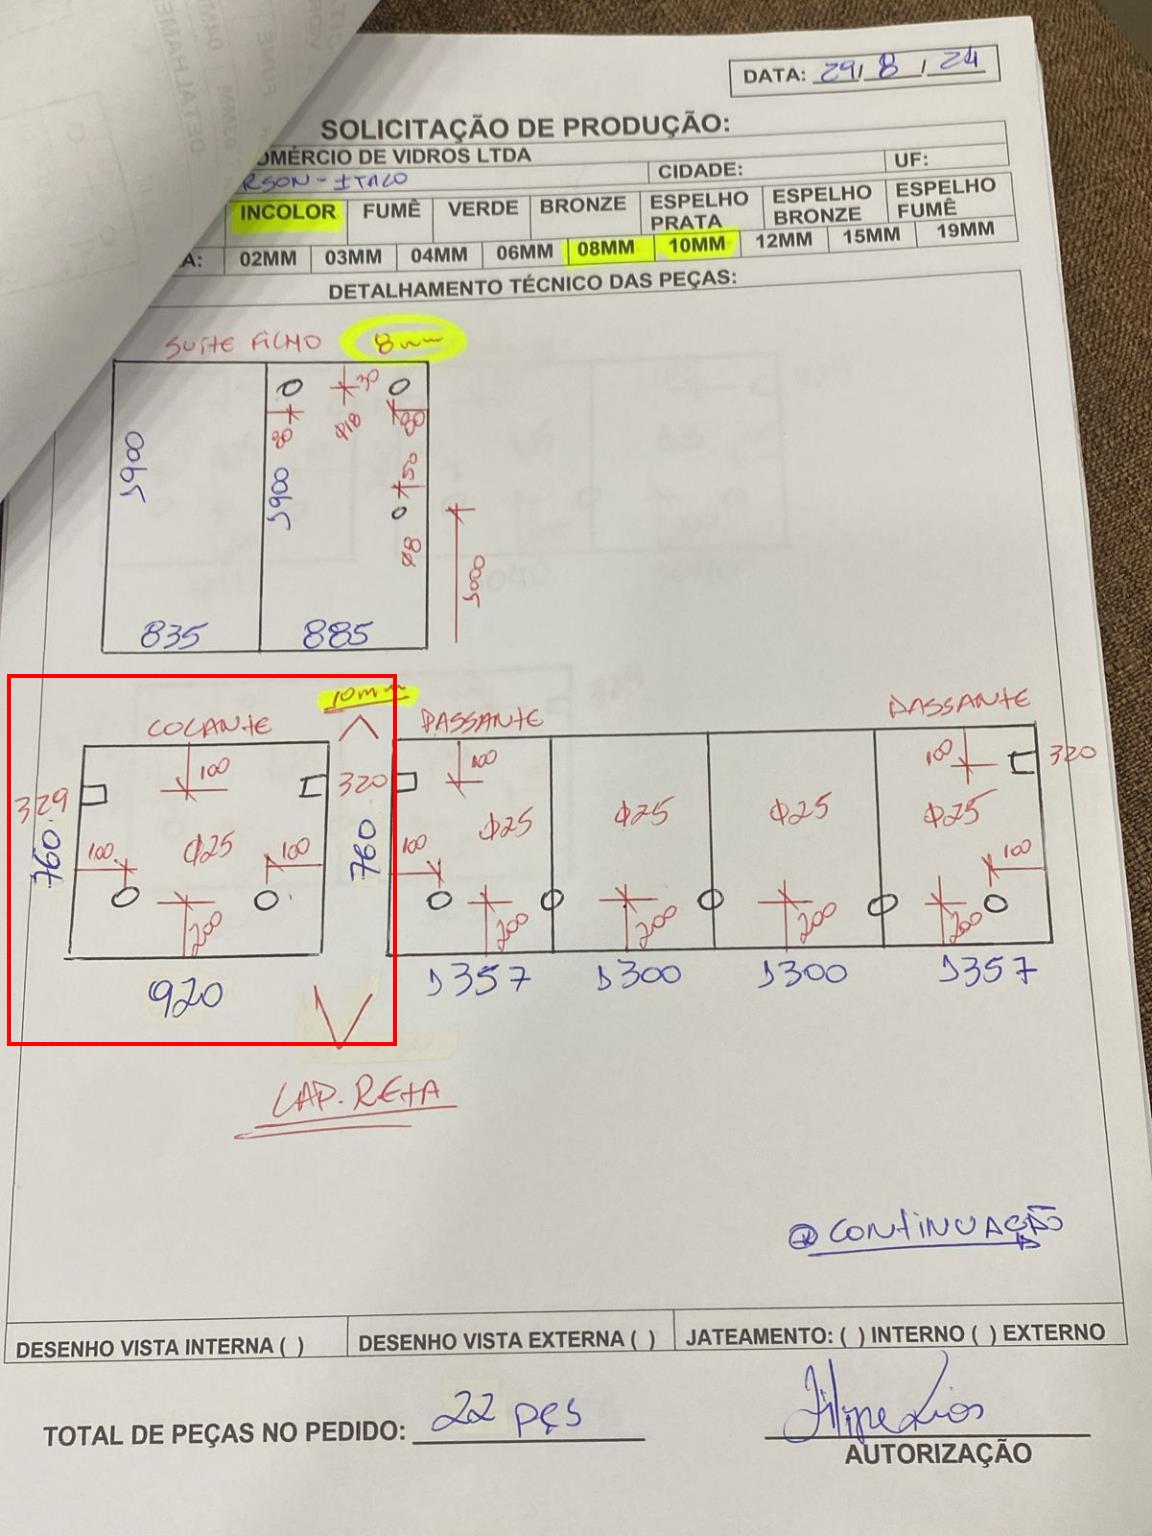 DATA: 29/ 8 / 24
SOLICITAÇÃO DE PRODUÇÃO:
OMÉRCIO DE VIDROS LTDA
RSON - ITALO CIDADE: UF:
INCOLOR FUMÊ VERDE BRONZE ESPELHO PRATA ESPELHO BRONZE ESPELHO FUMÊ
A: 02MM 03MM 04MM 06MM 08MM 10MM 12MM 15MM 19MM
DETALHAMENTO TÉCNICO DAS PEÇAS:
SUITE FILHO 8mm
30
80 Φ18 80
1900 1900 50
Φ8 1000
835 885
10mm
COLANTE PASSANTE PASSANTE
100 320 100 100 320
329 Φ25 Φ25 Φ25 Φ25
760 100 Φ25 100 760 100 100
200 200 200 200 200
920 1357 1300 1300 1357
LAP. RETA
CONTINUAÇÃO
DESENHO VISTA INTERNA ( ) DESENHO VISTA EXTERNA ( ) JATEAMENTO: ( ) INTERNO ( ) EXTERNO
TOTAL DE PEÇAS NO PEDIDO: 22 pçs
Filipe Lios
AUTORIZAÇÃO